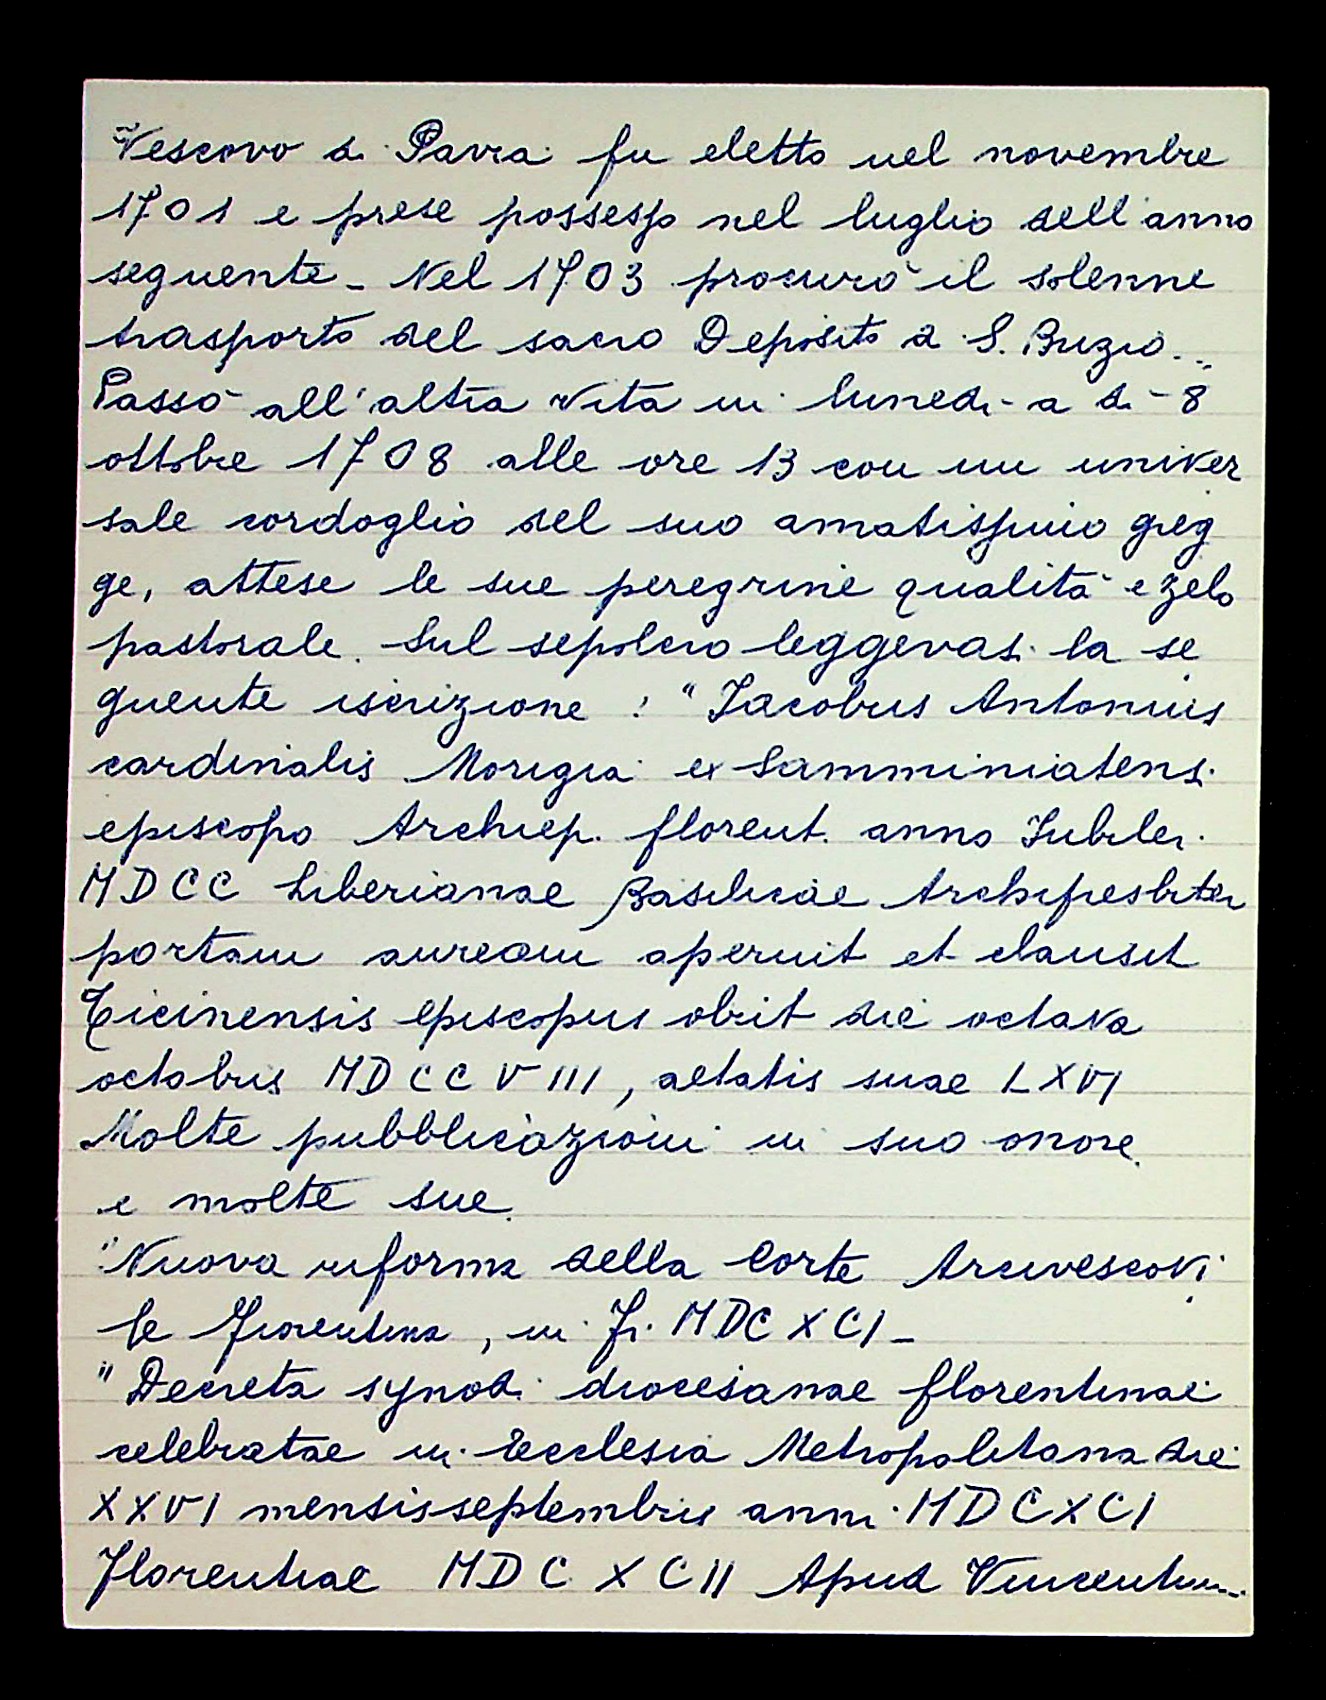 Vescovo di Pavia fu eletto nel novembre
1701 e prese possesso nel luglio dell'anno
seguente - Nel 1703 procurò il solenne
trasporto del sacro Deposito di S. Buzio...
Passò all'altra vita in lunedì a dì 8
ottobre 1708 alle ore 13 con un univer
sale cordoglio del suo amatissimo greg
ge, attese le sue peregrine qualità e zelo
pastorale. Sul sepolcro leggevasi la se
guente iscrizione : "Jacobus Antonius
cardinalis Morigia ex Samminiatensi
episcopo Archiep. florent. anno Jubilei
MDCC Liberianae Basilicae Archipresbiter
portam auream aperuit et clausit
Ticinensis episcopus obiit die octava
octobris MDCCVIII, aetatis suae LXVI
Molte pubblicazioni in suo onore
e molte sue.
"Nuova riforma della Corte Arcivescovi
le Fiorentina, in Fi. MDCXCI -
"Decreta synodi diocesanae florentinae
celebratae in Ecclesia Metropolitana die
XXVI mensis septembris anni MDCXCI
Florentiae MDCXCII Apud Vincentium...